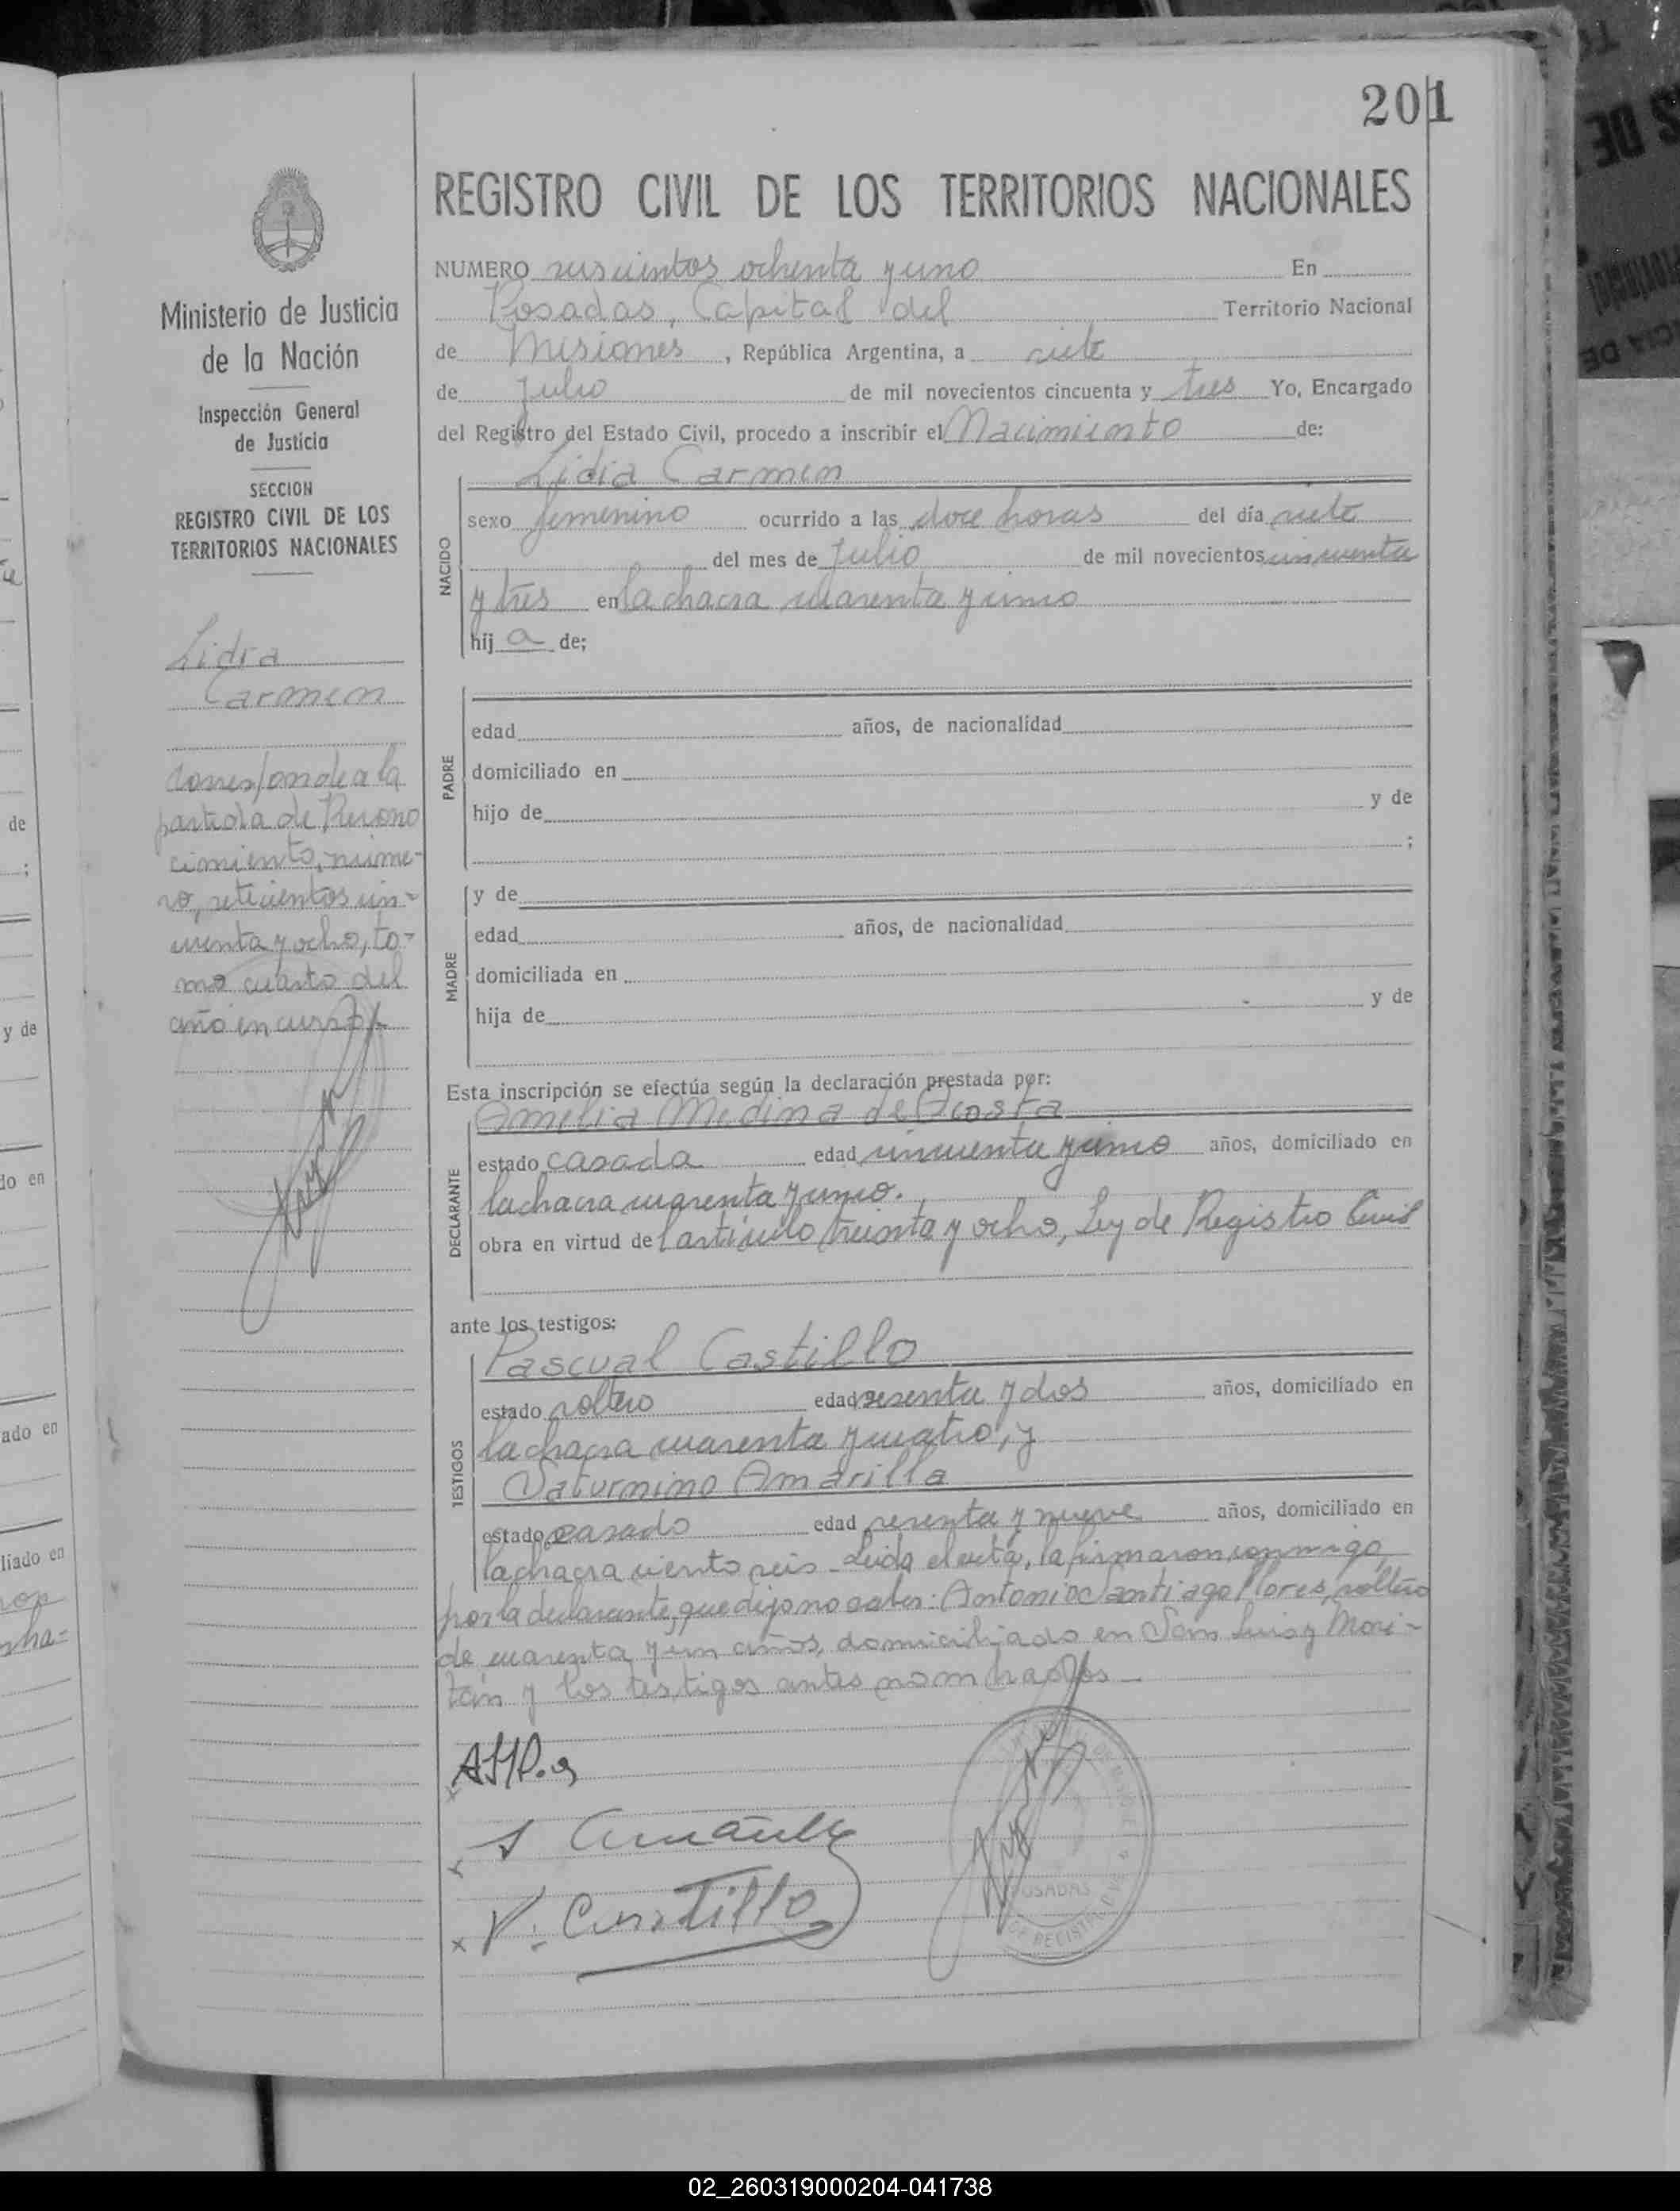 201
REGISTRO CIVIL DE LOS TERRITORIOS NACIONALES
Ministerio de Justicia
de la Nación
Inspección General
de Justicia
SECCION
REGISTRO CIVIL DE LOS
TERRITORIOS NACIONALES
Lidia
Carmen
corresponde a la
partida de Recono
cimiento, núme-
ro, setecientos cin-
cuenta y ocho, to-
mo cuarto del
año en curso
NUMERO seiscientos ochenta y uno En
Posadas, Capital del Territorio Nacional
de Misiones, República Argentina, a siete
de Julio de mil novecientos cincuenta y tres Yo, Encargado
del Registro del Estado Civil, procedo a inscribir el Nacimiento de:
Lidia Carmen
NACIDO
sexo femenino ocurrido a las doce horas del día siete
del mes de Julio de mil novecientos cincuenta
y tres en la chacra cuarenta y uno
hij a de;
PADRE
edad años, de nacionalidad
domiciliado en
hijo de y de
;
MADRE
y de
edad años, de nacionalidad
domiciliada en
hija de y de
Esta inscripción se efectúa según la declaración prestada por:
Amelia Medina de Acosta
DECLARANTE
estado casada edad cincuenta y uno años, domiciliado en
la chacra cuarenta y uno.
obra en virtud del artículo treinta y ocho, Ley de Registro Civil
ante los testigos:
Pascual Castillo
TESTIGOS
estado soltero edad sesenta y dos años, domiciliado en
la chacra cuarenta y cuatro, y
Saturnino Amarilla
estado casado edad sesenta y nueve años, domiciliado en
la chacra ciento seis - Leida el acta, la firmaron conmigo,
por la declarante, que dijo no saber: Antonio Santiago Flores, soltero
de cuarenta y un años, domiciliado en San Luis y Mori-
tán y los testigos antes nombrados
S Amarilla
P. Castillo
POSADAS
02_260319000204-041738